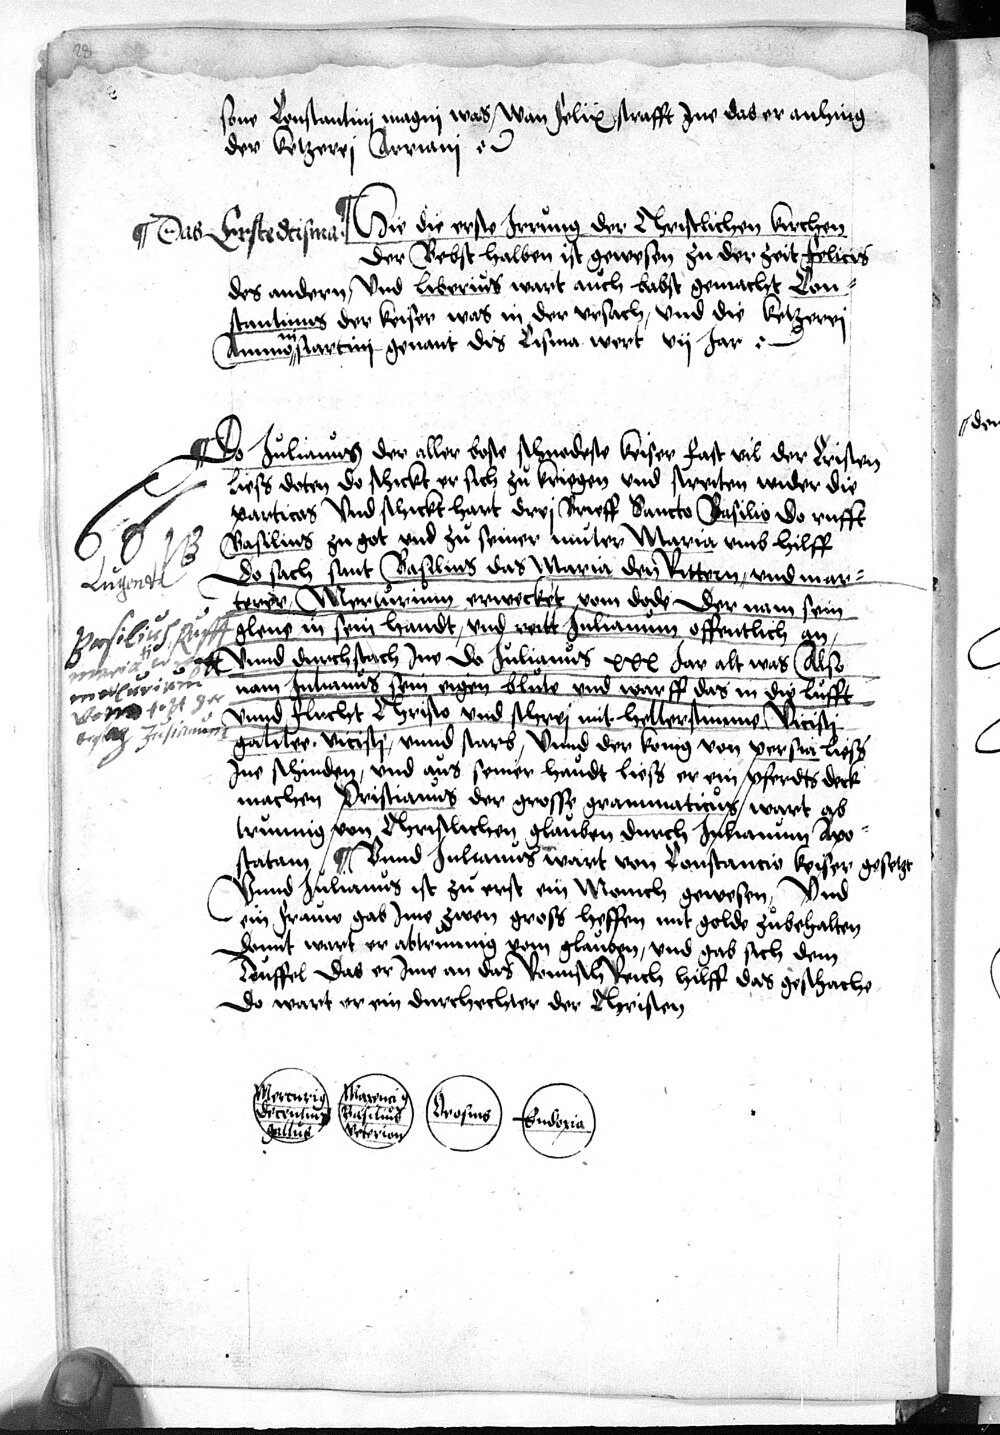 28
sone Constantinj magnj was, Wan Felix strafft Jne das er anhing
der ketzerej Arrianj
¶ Das Erste Scisma
¶ Hie die erste Jrrung der Christlichen kirchen
der Bebst halben ist gewesen zu der zeit Felicis
des andern, Vnd Liberius wart auch babst gemacht Con-
stantinus der keiser was in der vrsach, vnd die ketzerej
genant dis Cisma wert vij Jar
¶ Do Julianus der aller bose schnodeste keiser fast vil der Cristen
liess doten do schickt er sich zu kriegen vnd streiten wider die
particos Vnd schickt hart drej brieff Sancto Basilio do rufft
Basilius zu got vnd zu seiner muter Maria vmb hilff
Do sach sant Basilius das Maria den Rittern, vnd mar-
terer, Mercurium erwecket vom dode Der nam sein
glene in sein handt, vnd reitt Julianum offentlich an,
Vnnd durchstach Jne do Julianus xxx Jar alt was Also
nam Julianus sein eigen blute vnd warff das in die lufft
vnnd flucht Christo vnd schrej mit heller stimme, Vicisti
galilee, vicistj, vnnd starb, Vnnd der konig von persia liess
Jne schinden, vnd aus seiner haudt liess er ein pferdts deck
machen Pristianus der grosse grammaticus, wart ab
trunnig von Christlichen glauben durch Julianum Apo-
statam, ¶ Vnnd Julianus wart von Constancio keiser gesetzt
Vnnd Julianus ist zu erst ein Monch gewesen, Vnd
ein frauw gab Jme zwen gross heffen mit golde zubehalten
Domit wart er abtrinnig vom glauben, vnd gab sich dem
Deuffel Das er Jme an das Romisch Reich hilff das geschache
Do wart er ein durchechter der Christen
Basilius Rufft
maria
mercurium
vom tott
Julianum
Mercurig
Decentius
gallus
Maxenci9
Basilius
Veterion
Orosius
Eudoxia